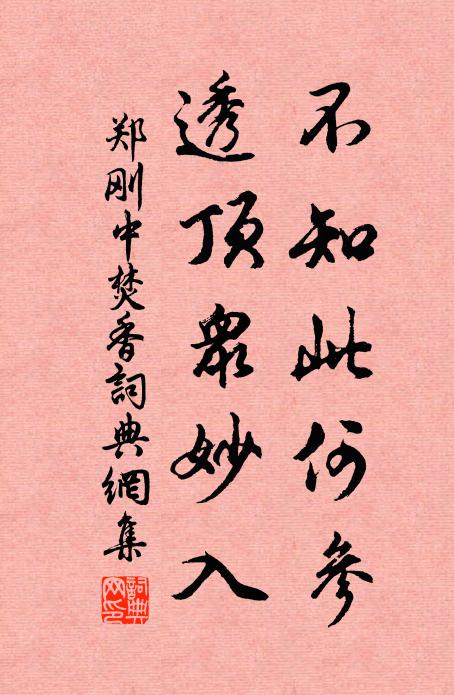 不知此何參
透頂眾妙入
郑刚中焚香詞典網集
詞典网印